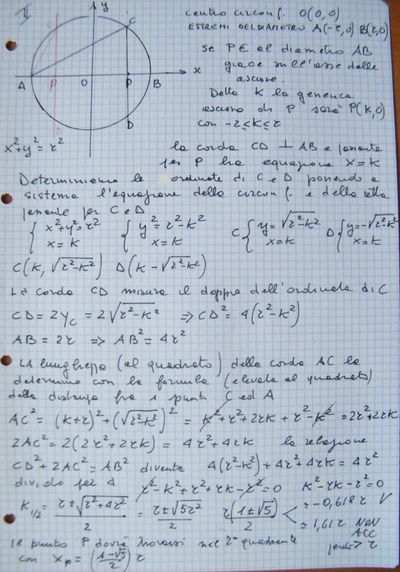 y
C
A P O P B x
D D
x²+y²=r²
centro circonf. O(0,0)
ESTREMI DEL DIAMETRO A(-r,0) B(r,0)
se P∈ al diametro AB
giace sull'asse delle
ascisse.
Detta K la generica
ascissa di P sarà P(k,0)
con -r≤k≤r
la corda CD ⊥ AB e passante
per P ha equazione x=k
Determiniamo le ordinate di C e D ponendo a
sistema l'equazione della circonf. e della retta
passante per C e D
{x²+y²=r² {y²=r²-k² C{y=√r²-k² D{y=-√r²-k²
x=k x=k x=k x=k
C(k, √r²-k²) D(k -√r²-k²)
La corda CD misura il doppio dell'ordinata di C
CD=2yc=2√r²-k² ⇒ CD²=4(r²-k²)
AB=2r ⇒ AB²=4r²
LA lunghezza (al quadrato) della corda AC la
determino con la formula (elevata al quadrato)
della distanza fra i punti C ed A
AC²=(k+r)²+(√r²-k²)²=k²+r²+2rk+r²-k²=2r²+2rk
2AC²=2(2r²+2rk)=4r²+4rk la relazione
CD²+2AC²=AB² diventa 4(r²-k²)+4r²+4rk=4r²
divido per 4 r²-k²+r²+rk-r²=0 k²-rk-r²=0
K1/2 = r±√r²+4r²/2 = r±√5r²/2 r(1±√5)/2 < =-0,618r V
=1,61r NON ACC perché>r
Il punto P dovrà trovarsi nel 2° quadrante
con xp=(1-√5/2)r